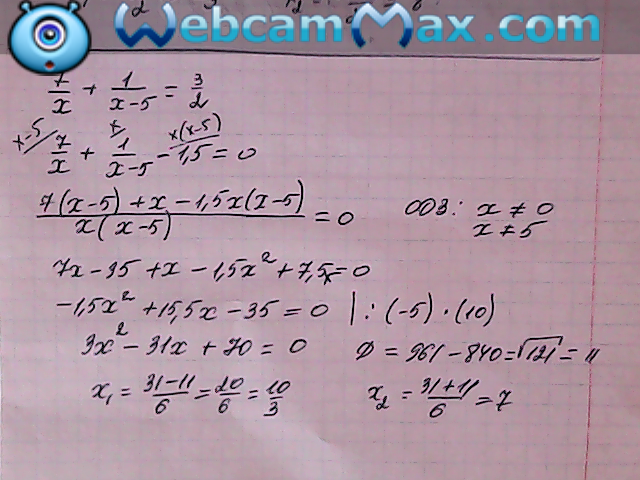 WebcamMax.com
7/x + 1/(x-5) = 3/2
x-5 x x(x-5)
7/x + 1/(x-5) - 1,5 = 0
(7(x-5) + x - 1,5x(x-5))/(x(x-5)) = 0 ОДЗ: x ≠ 0
x ≠ 5
7x - 35 + x - 1,5x² + 7,5x = 0
-1,5x² + 15,5x - 35 = 0 | : (-5) · (10)
3x² - 31x + 70 = 0 D = 961 - 840 = √121 = 11
x₁ = (31-11)/6 = 20/6 = 10/3 x₂ = (31+11)/6 = 7